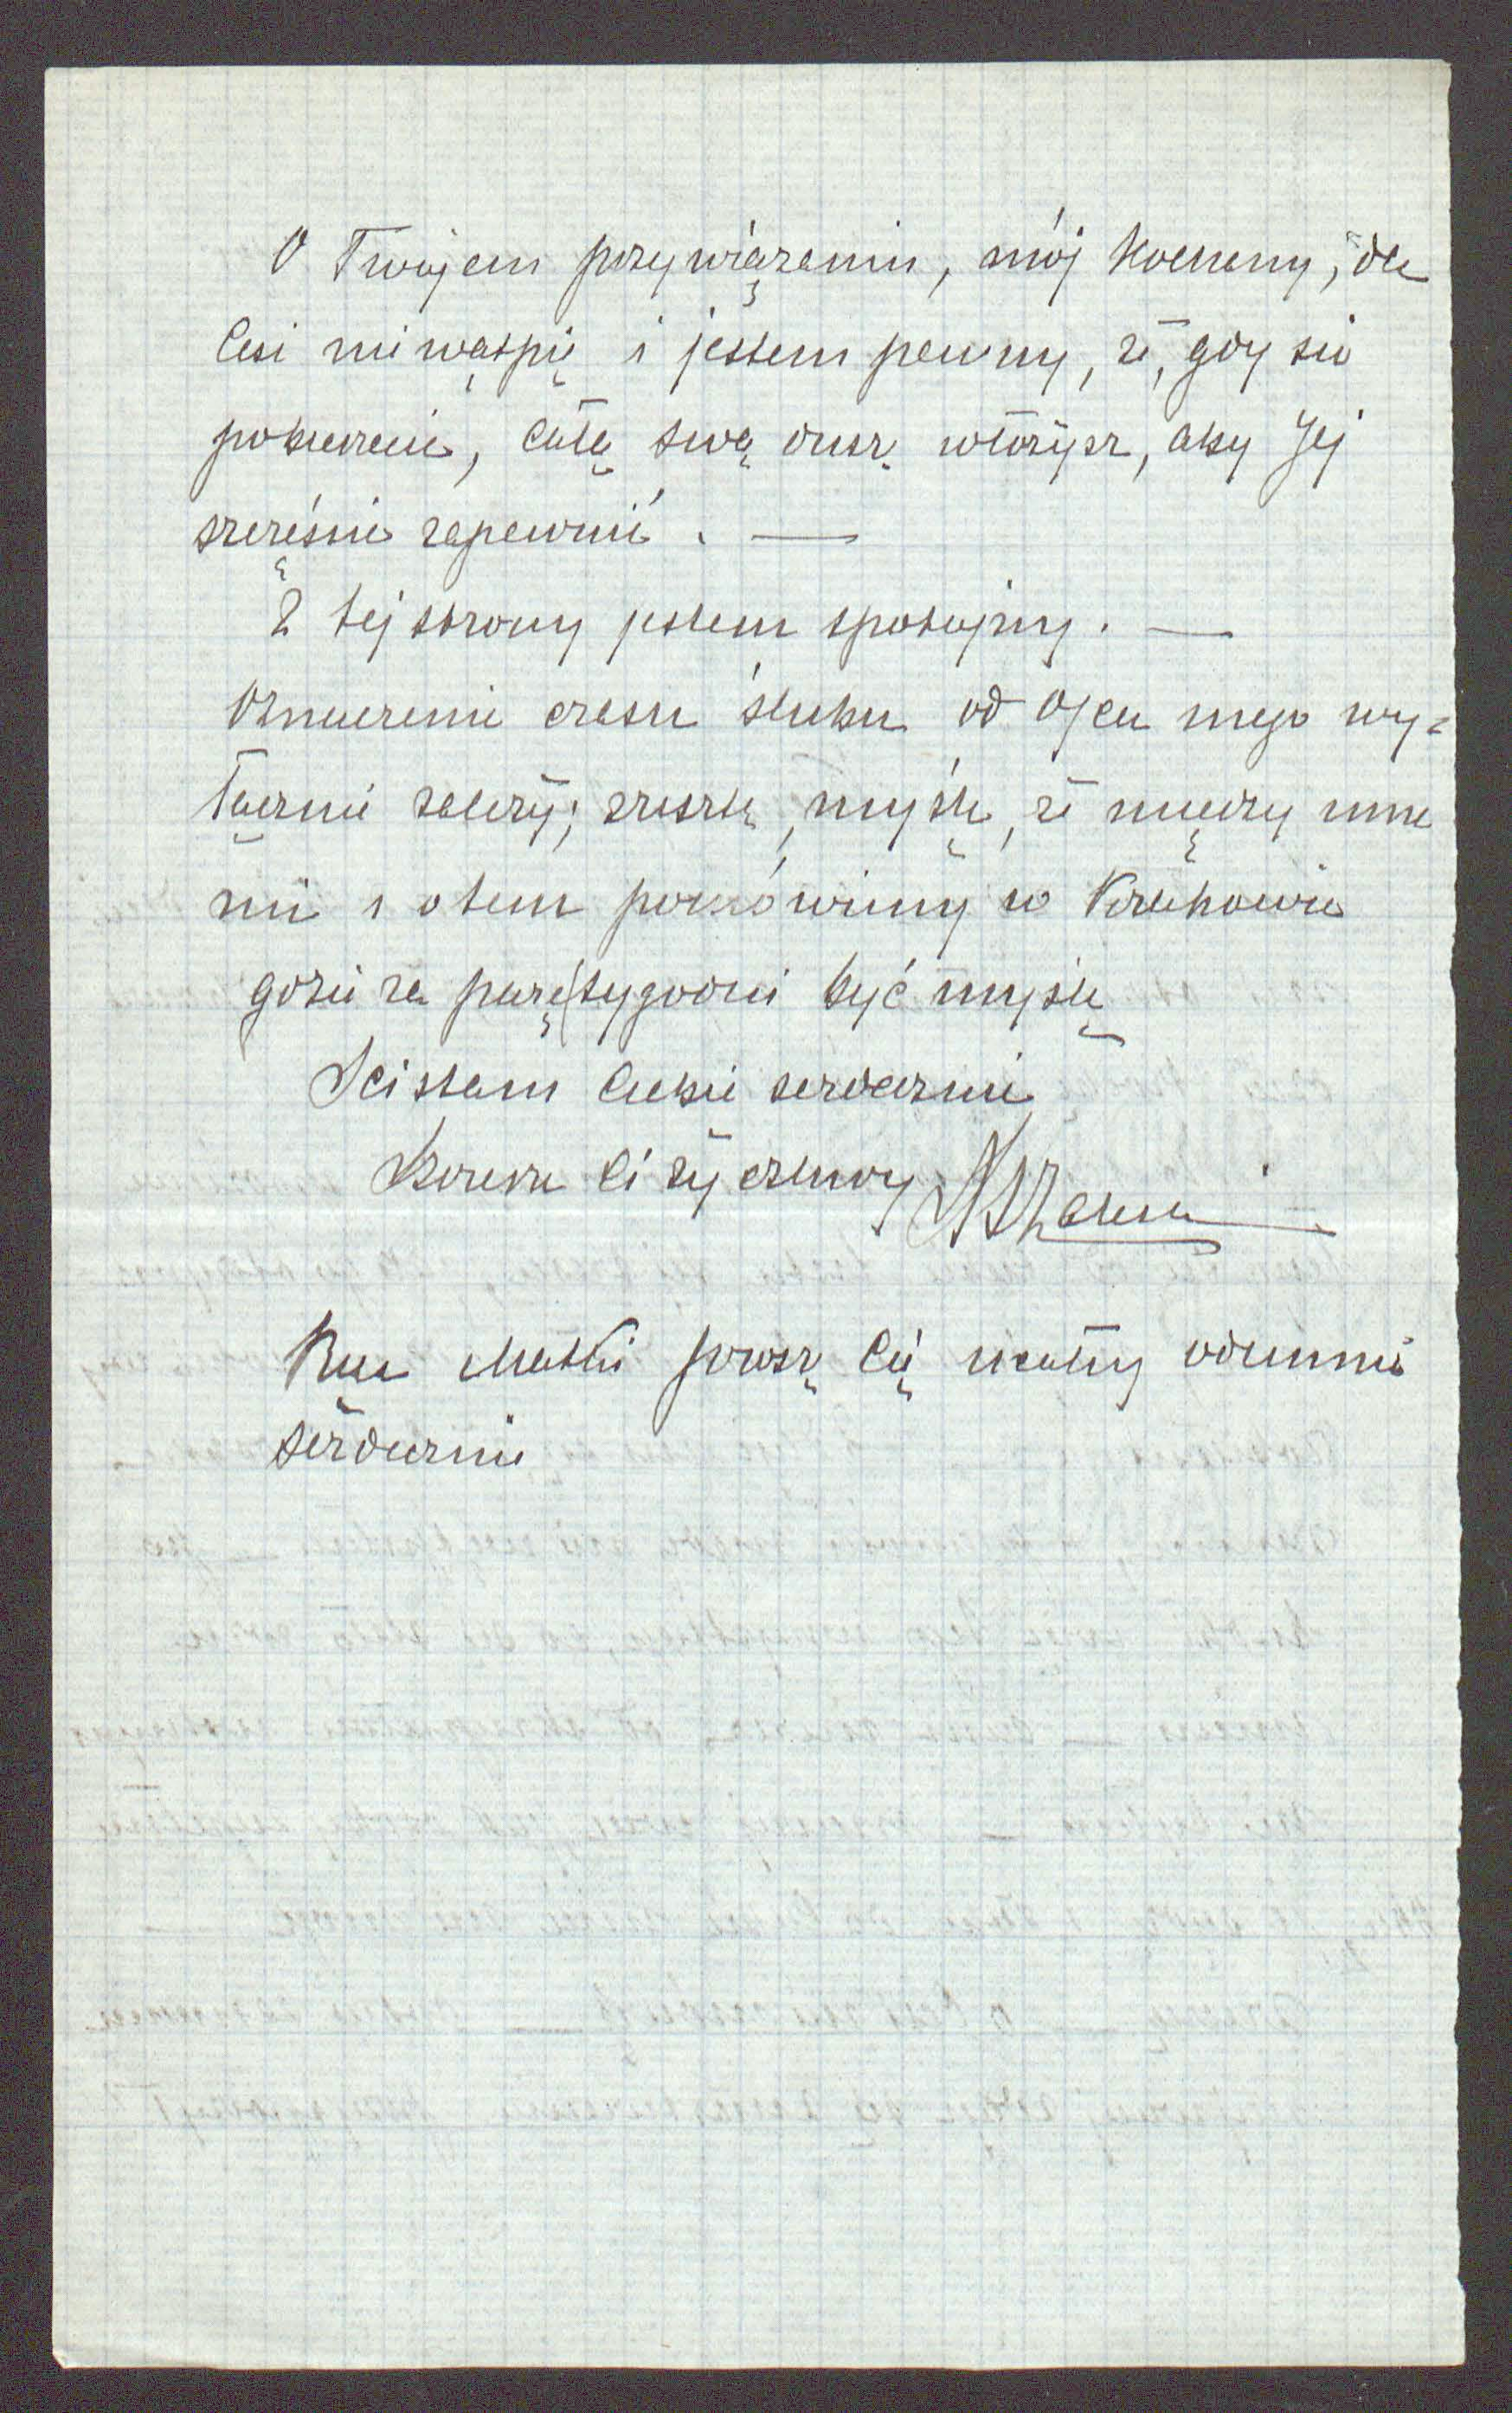 O Twojem przywiązaniu, mój Kochany, dla
Cesi nie wątpię i jestem pewny, że, gdy się
pobierzecie, całą swą duszę włożysz, aby Jej
szczęście zapewnić. —
Z tej strony jestem spokojny. —
Oznaczenie czasu ślubu od Ojca mego wy-
łącznie zależy; zresztą, myślę, że między inne
mi i o tem pomówimy w Krakowie
gdzie za parę tygodni być myślę
Ściskam Ciebie serdecznie
Szczerze Ci życzliwy
Rączki Matki proszę Cię ucałuj odemnie
serdecznie